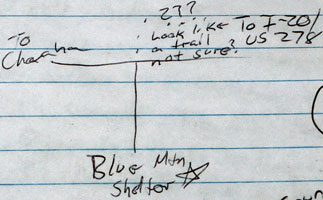 ???
To
Look like To I-20/
a trail US 278
not sure?
Blue Mtn
Shelter